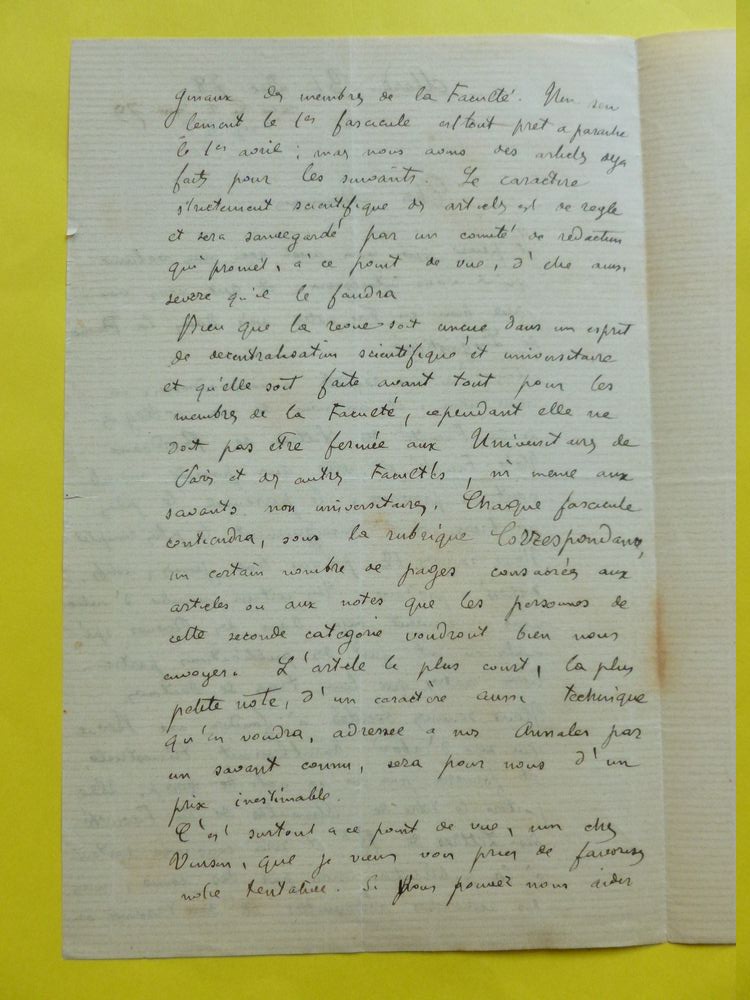 ginaux des membres de la Faculté. Non seu
lement le 1er fascicule est tout prêt a paraitre
le 1er avril ; mais nous avons des articles deja
faits pour les suivants. Le caractère
strictement scientifique des articles est de regle
et sera sauvegardé par un comité de redaction
qui promet, à ce point de vue, d'être aussi
severe qu'il le faudra
Bien que la revue soit conçue dans un esprit
de decentralisation scientifique et universitaire
et qu'elle soit faite avant tout pour les
membres de la Faculté, cependant elle ne
doit pas être fermée aux Universitaires de
Paris et des autres Facultés, ni meme aux
savants non universitaires. Chaque fascicule
contiendra, sous la rubrique Correspondance,
un certain nombre de pages consacrées aux
articles ou aux notes que les personnes de
cette seconde categorie voudront bien nous
envoyer. L'article le plus court, la plus
petite note, d'un caractère aussi technique
qu'on voudra, adressee a nos Annales par
un savant connu, sera pour nous d'un
prix inestimable.
C'est surtout a ce point de vue, mon cher
Vinson, que je viens vous prier de favoriser
notre tentative. Si Vous pouvez nous aider